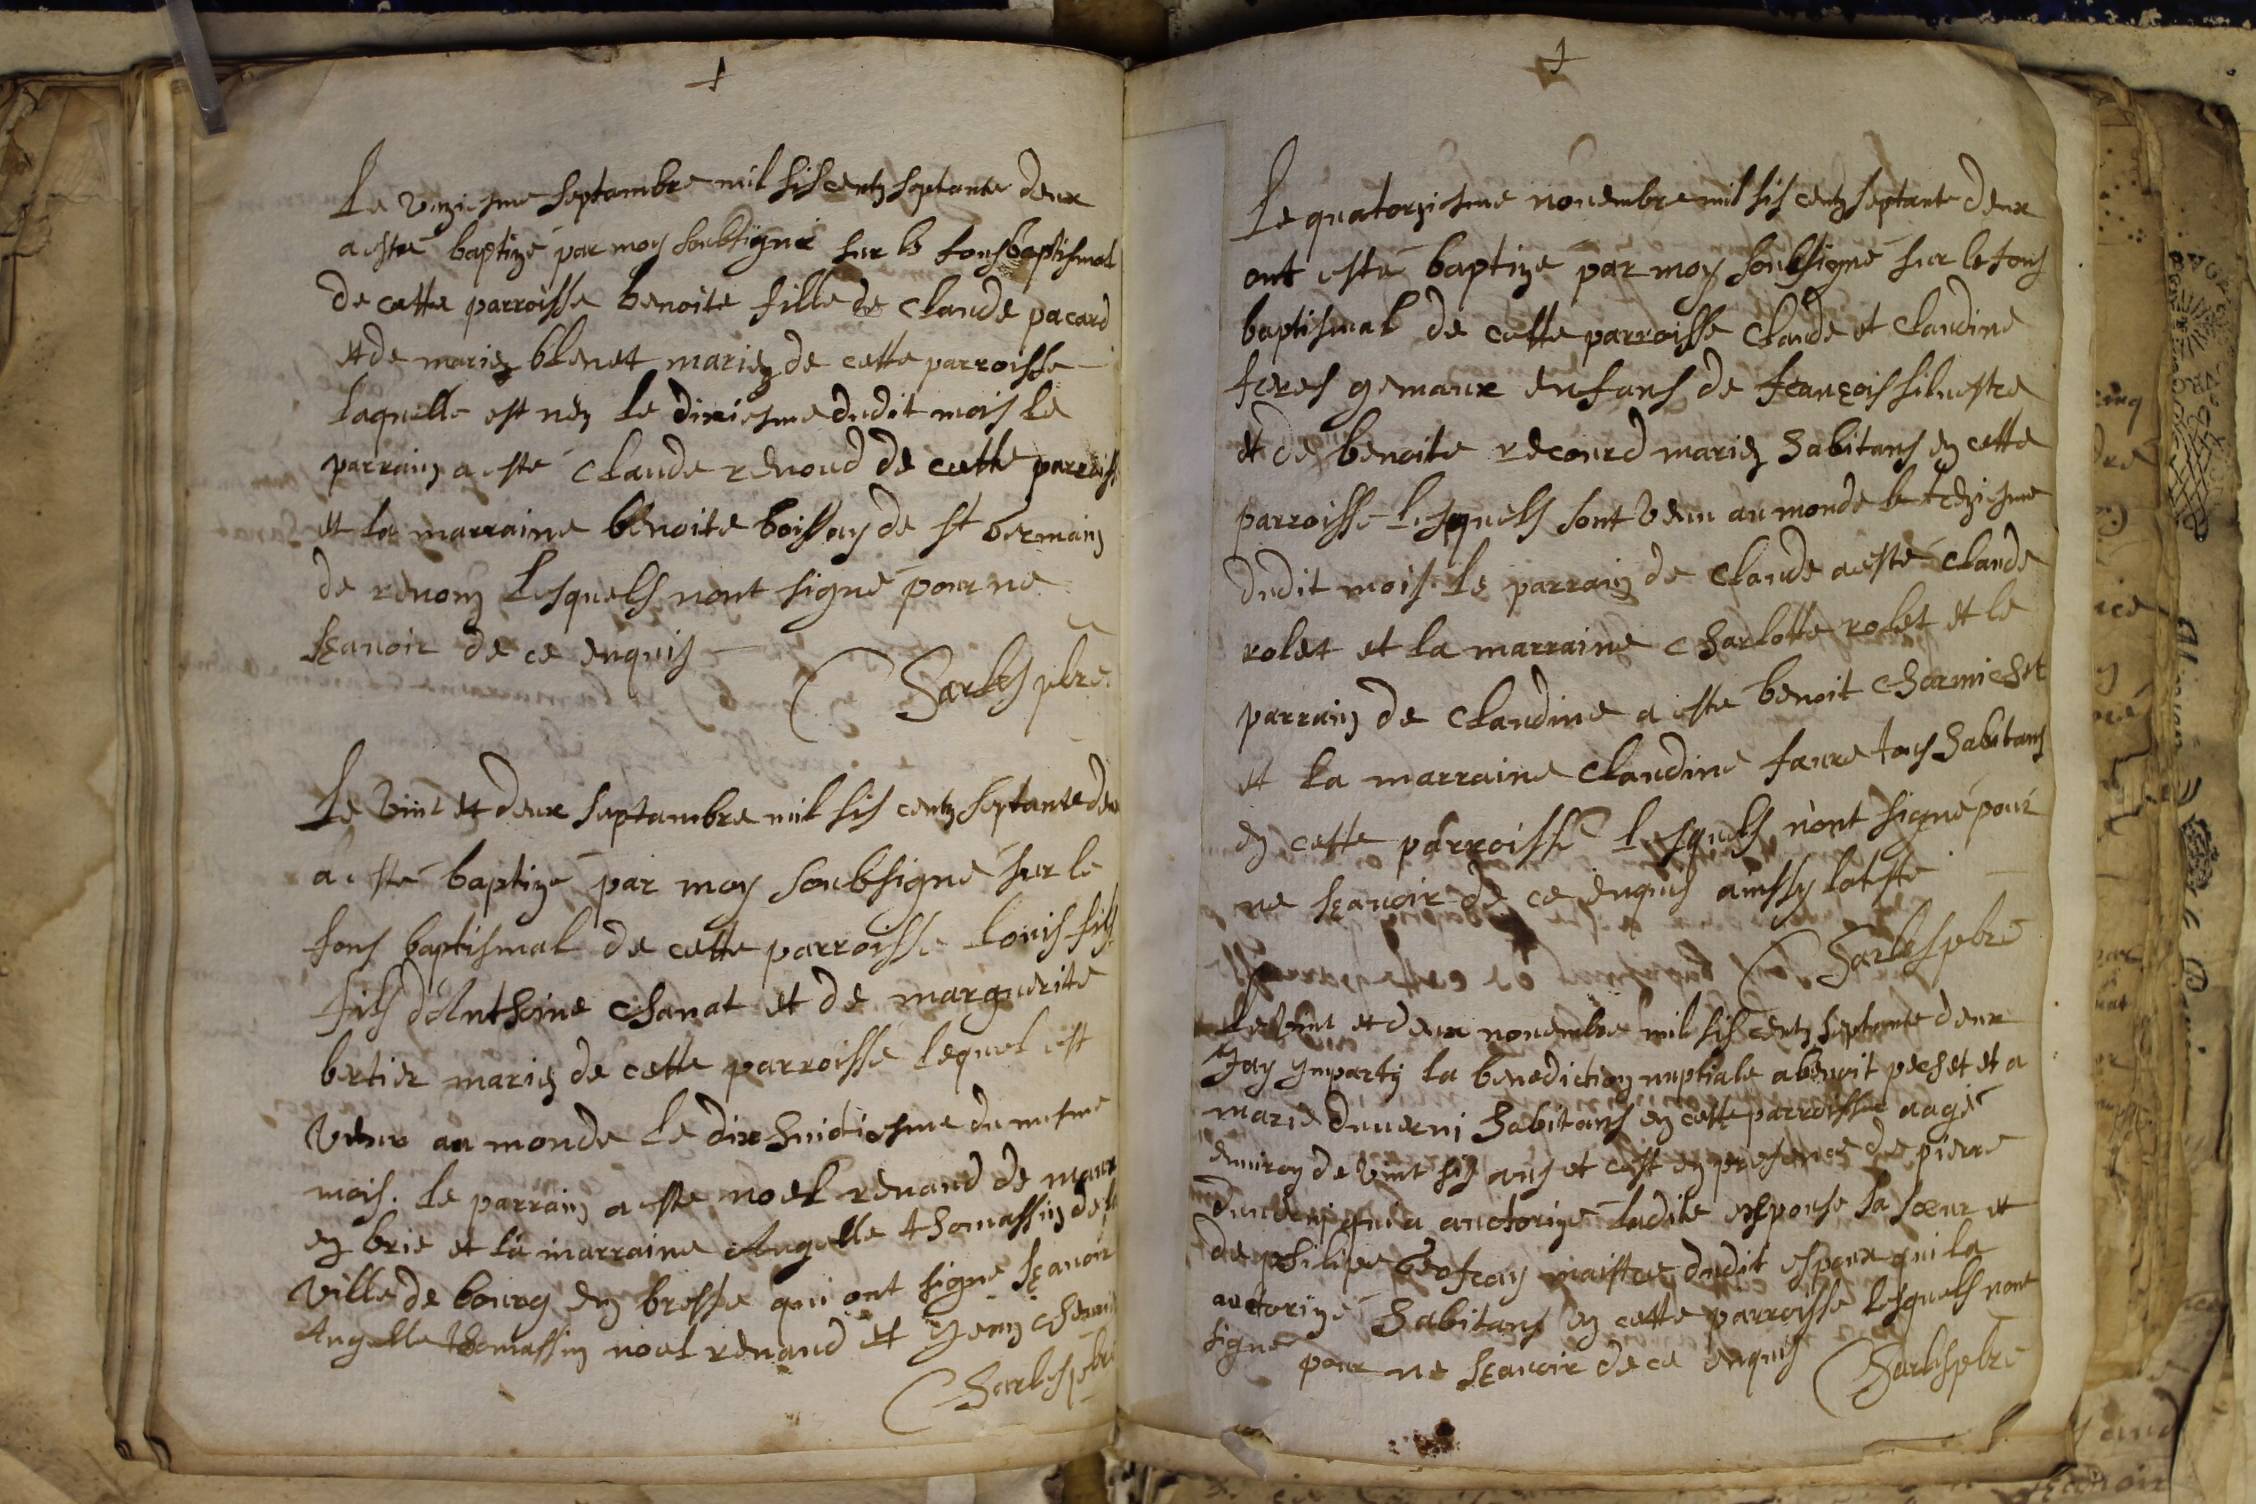 Le vnziesme septambre mil sis centz septante deux
a esté baptizé par moy soubsigné sur le fons baptismal
de cette parroisse benoite fille de Claude pacard
et de mariez blenet mariez de cette parroisse
laquelle est néz le dixiesme dudit mois le
parrain a esté Claude renoud de cette parroiss
et la marraine benoite boissay de st germain
de renon Lesquels nont signé pour ne
sçauoir de ce enquis
Charles pbre
Le vint et deux septambre mil sis centz septante deu
a esté baptizé par moy soubsigné sur le
fons baptismal de cette parroisse Louis fils
fils dAnthoine Chanat et de marguerite
bertier mariez de cette parroisse lequel est
venu au monde le dix huictiesme du mesme
mois. le parrain a esté noel renaud de maux
en brie et la marraine Angelle thomassin de la
ville de bourg en bresse qui ont signé sçauoir
Angelle thomassin noel renaud et Jean
Charles pbre
Le quatorziesme nouembre mil sis centz septante deux
ont esté baptize par moy soubsigné sur le fons
baptismal de cette parroisse Claude et Claudine
freres gemaux enfans de françois siluestre
et de benoite recourd mariez habitans en cette
parroisse Lesquels sont venu au monde le trèziesme
dudit mois. le parrain de Claude a esté Claude
rolet et la marraine Charlotte rolet et le
parrain de Claudine a este benoit Charmichet
et la marraine Claudine faure tous habitans
en cette parroisse Lesquels nont signé pour
ne sçauoir de ce enquis ainssy lateste
Charles pbre
Le vint et deux nouembre mil sis centz septante deux
Jay ymparty la benediction nuptiale a benoit pechet et a
marie duuerni habitans en cette parroisse aagé
enuiron de vint sis ans et cest en presence de pierre
duuerni qui a auctorizé ladite espouse sa soeur et
de philipe geofray maistre dudit espoux qui la
auctorizé habitans en cette parroisse lesquels nont
signé pour ne sçauoir de ce enquis Charles pbre